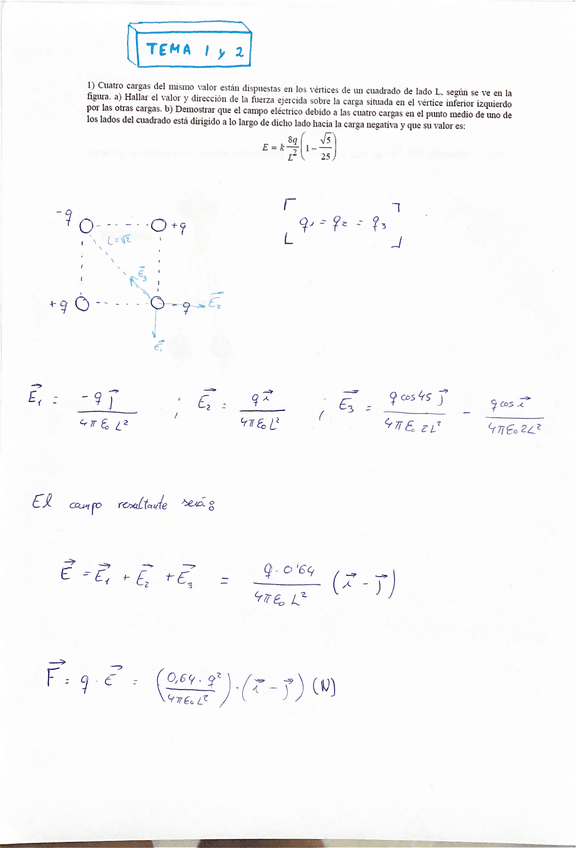 TEMA 1 y 2
1) Cuatro cargas del mismo valor están dispuestas en los vértices de un cuadrado de lado L, según se ve en la
figura. a) Hallar el valor y dirección de la fuerza ejercida sobre la carga situada en el vértice inferior izquierdo
por las otras cargas. b) Demostrar que el campo eléctrico debido a las cuatro cargas en el punto medio de uno de
los lados del cuadrado está dirigido a lo largo de dicho lado hacia la carga negativa y que su valor es:
E = k 8q/L² (1 − √5/25)
-q +q
[q₁ = q₂ = q₃]
L=√2
E⃗₃
+q -q E⃗₂
E⃗₁
E⃗₁ = -q j⃗ / 4πε₀ L² ; E⃗₂ = q i⃗ / 4πε₀ L² ; E⃗₃ = q cos45 j⃗ / 4πε₀ 2L² − q cos i⃗ / 4πε₀ 2L²
El campo resultante será:
E⃗ = E⃗₁ + E⃗₂ + E⃗₃ = q · 0'64 / 4πε₀ L² (i⃗ − j⃗)
F⃗ = q · E⃗ = (0,64 · q² / 4πε₀L²) · (i⃗ − j⃗) (N)